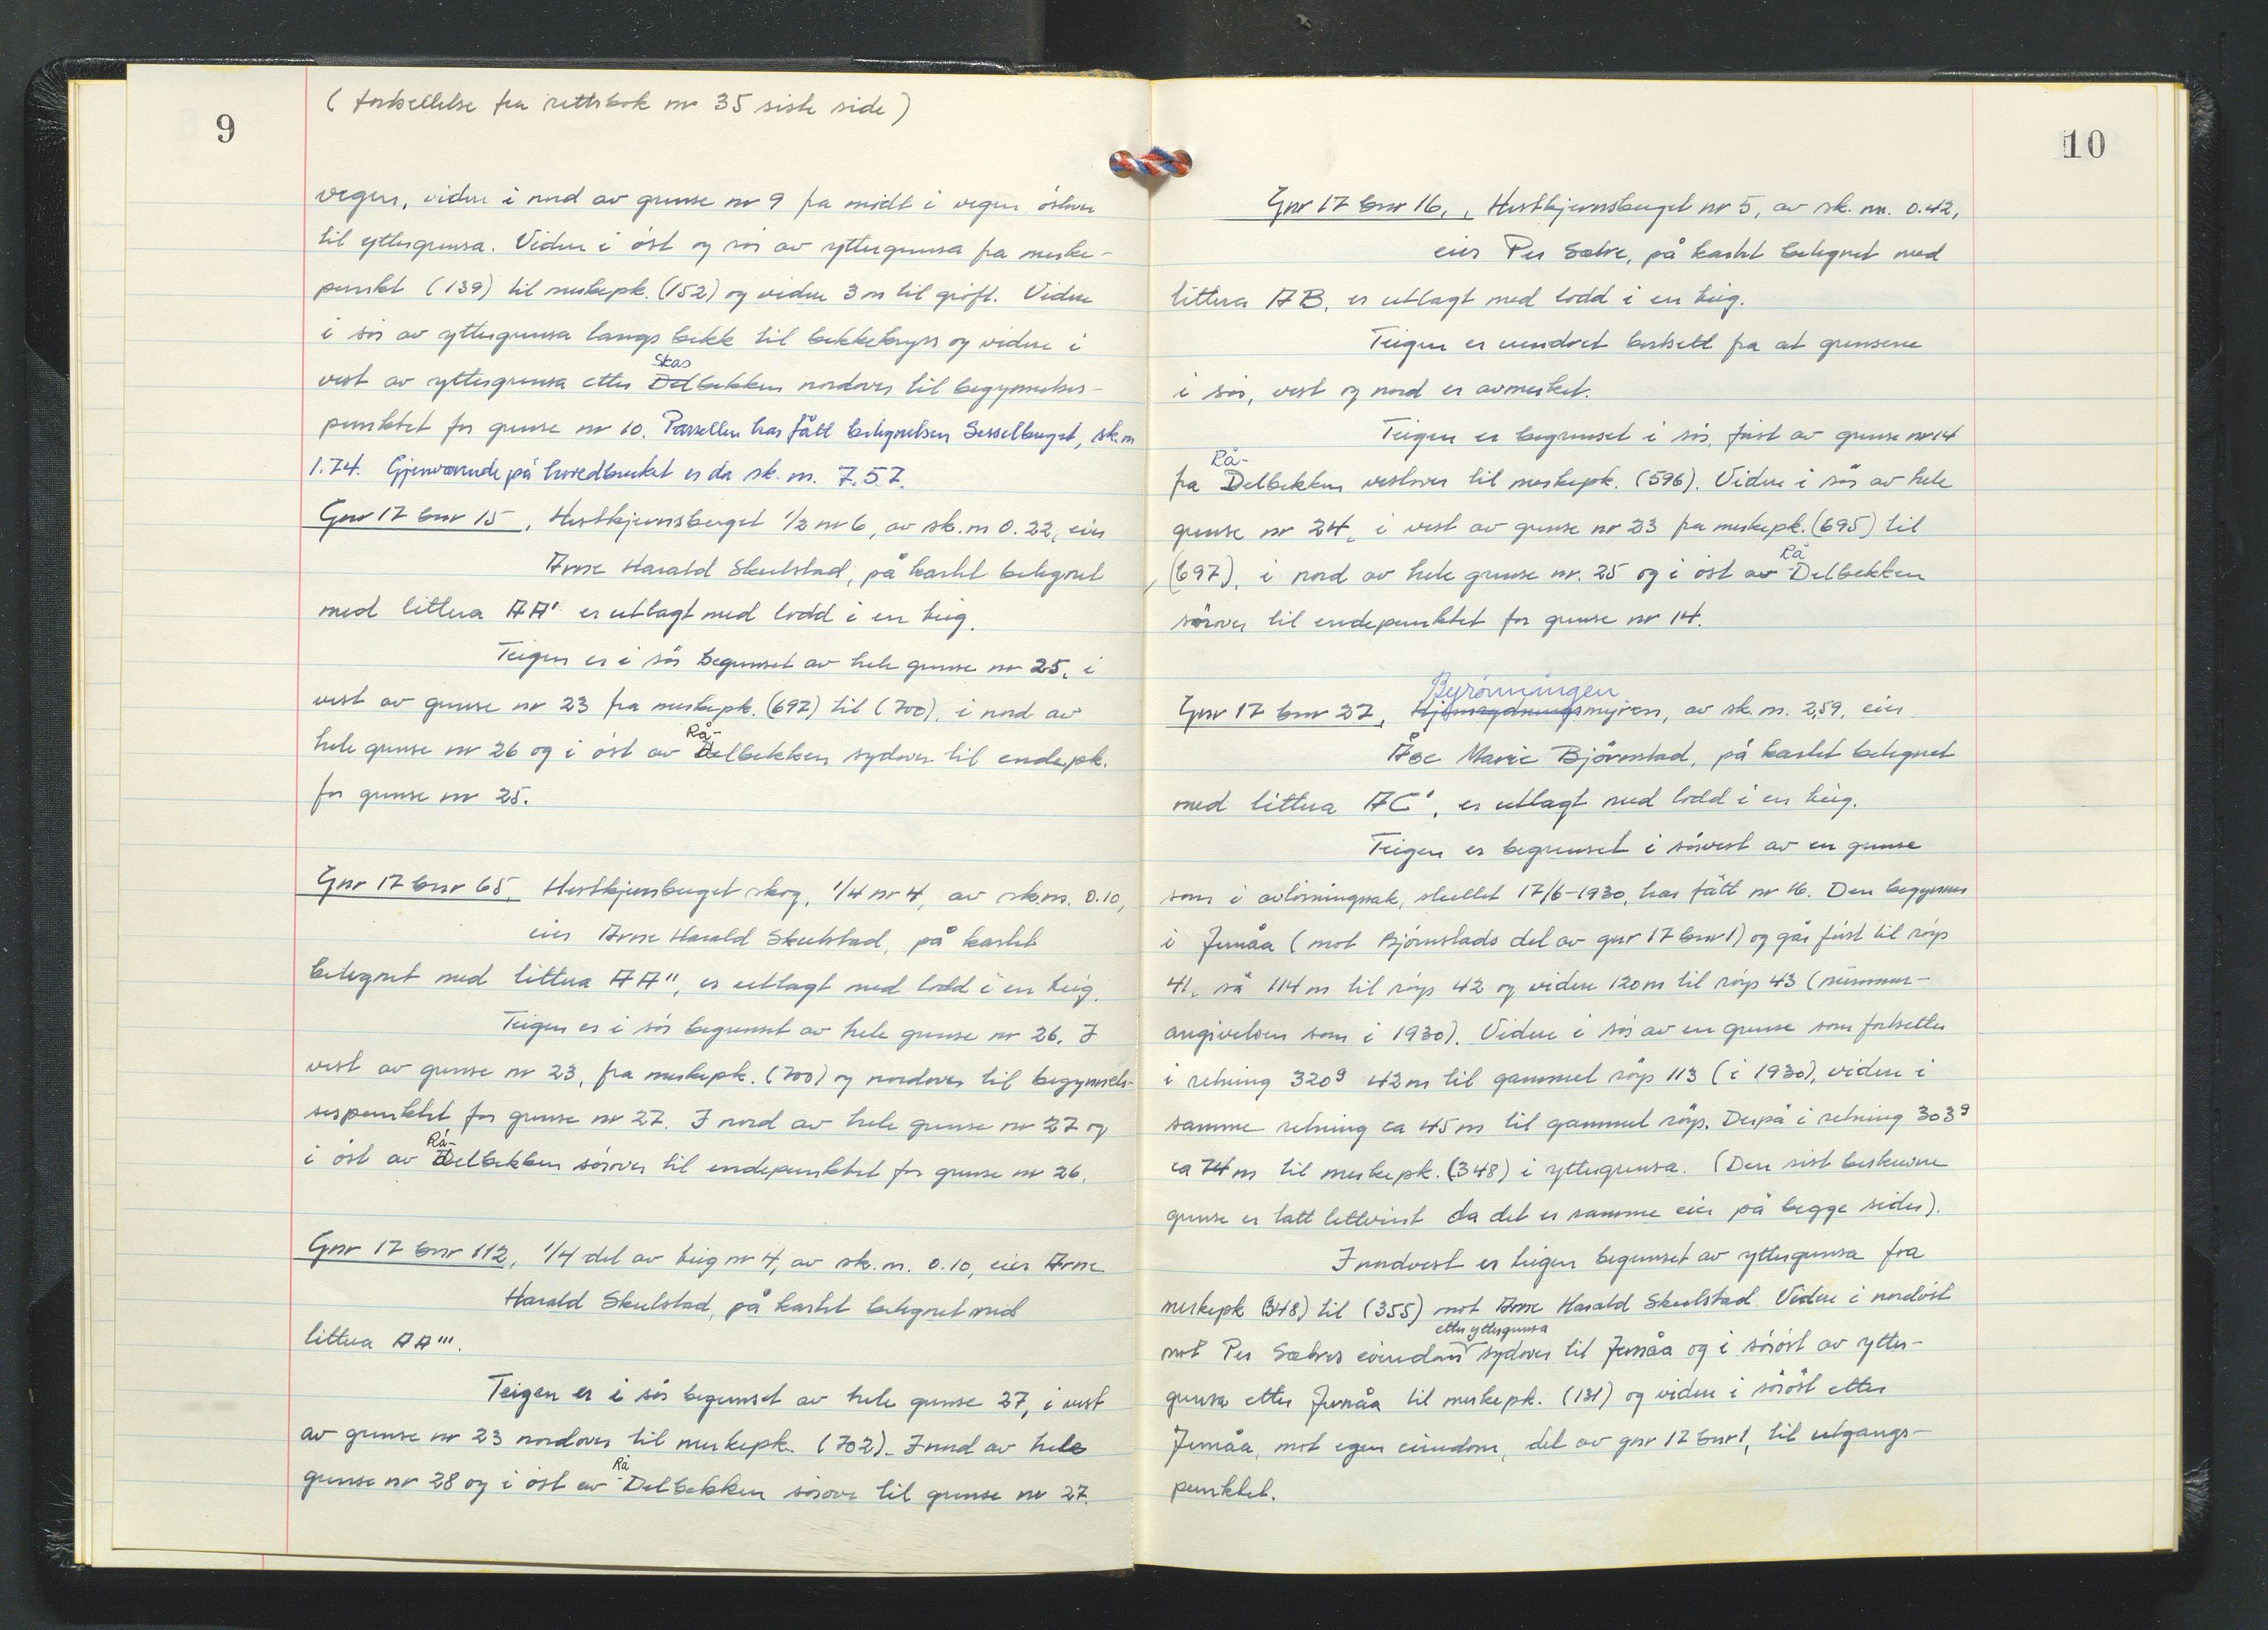 9
(fortsettelse fra rettsbok nr 35 siste side)
vegen, videre i nord av grense nr 9 fra midt i vegen östover
til yttergrensa. Videre i öst og sör av yttergrensa fra merke-
punkt (139) til merkepk. (152) og videre 3 m til gröft. Videre
i sör av yttergrensa langs bekk til bekkekryss og videre i
Skas
vest av yttergrensa etter Delbekken nordover til begynnelses-
punktet for grense nr 10. Parsellen har fått betegnelsen Sesselberget, sk.m
1.74. Gjenværende på hovedbruket er da sk. m. 7.57.
Gnr 17 bnr 15, Hestkjernsberget 1/2 nr 6, av sk.m 0.22, eier
Arne Harald Skulstad, på kartet betegnet
med littera AA' er utlagt med lodd i en teig.
Teigen er i sör begrenset av hele grense nr 25, i
vest av grense nr 23 fra merkepk. (697) til (700), i nord av
Rå-
hele grense nr 26 og i öst av Delbekken sydover til endepk.
for grense nr 25.
Gnr 17 bnr 65, Hestkjernsberget skog, 1/4 nr 4, av sk.m. 0.10,
eier Arne Harald Skulstad, på kartet
betegnet med littera AA", er utlagt med lodd i en teig.
Teigen er i sör begrenset av hele grense nr 26. I
vest av grense nr 23, fra merkepk. (700) og nordover til begynnels-
sespunktet for grense nr 27. I nord av hele grense nr 27 og
Rå-
i öst av Delbekken sörover til endepunktet for grense nr 26.
Gnr 17 bnr 112, 1/4 del av teig nr 4, av sk. m. 0.10, eier Arne
Harald Skulstad, på kartet betegnet med
littera AA'''.
Teigen er i sör begrenset av hele grense 27, i vest
av grense nr 23 nordover til merkepk. (702). I nord av hele
Rå-
grense nr 28 og i öst av Delbekken sörover til grense nr 27.
10
Gnr 17 bnr 16, Hestkjernsberget nr 5, av sk. m. 0.42,
eier Per Sætre, på kartet betegnet med
littera AB, er utlagt med lodd i en teig.
Teigen er uendret bortsett fra at grensene
i sör, vest og nord er avmerket.
Teigen er begrenset i sör, först av grense nr 14
Rå-
fra Delbekken vestover til merkepk. (596). Videre i sör av hele
grense nr 24, i vest av grense nr 23 fra merkepk. (695) til
Rå-
(697), i nord av hele grense nr. 25 og i öst av Delbekken
sörover til endepunktet for grense nr 14.
Byrönningen
Gnr 17 bnr 27, myren, av sk. m. 2,59, eier
Åse Marie Björnstad, på kartet betegnet
med littera AC', er utlagt med lodd i en teig.
Teigen er begrenset i sörvest av en grense
som i avlösningssak, sluttet 17/6-1930, har fått nr 16. Den begynner
i Jernåa (mot Björnstads del av gnr 17 bnr 1) og går först til röys
41, så 114 m til röys 42 og videre 120 m til röys 43 (nummer-
angivelsen som i 1930). Videre i sör av en grense som fortsetter
i retning 320g 42 m til gammel röys 113 (i 1930), videre i
samme retning ca 45 m til gammel röys. Derpå i retning 303g
ca 74 m til merkepk. (348) i yttergrensa. (Den sist beskrevne
grense er tatt lettvint da det er samme eier på begge sider).
I nordvest er teigen begrenset av yttergrensa fra
merkepk (348) til (355) mot Arne Harald Skulstad. Videre i nordöst
etter yttergrensa
mot Per Sætres eiendom sydover til Jernåa og i söröst av ytter-
grensa etter Jernåa til merkepk. (131) og videre i söröst etter
Jernåa, mot egen eiendom, del av gnr 17 bnr 1, til utgangs-
punktet.